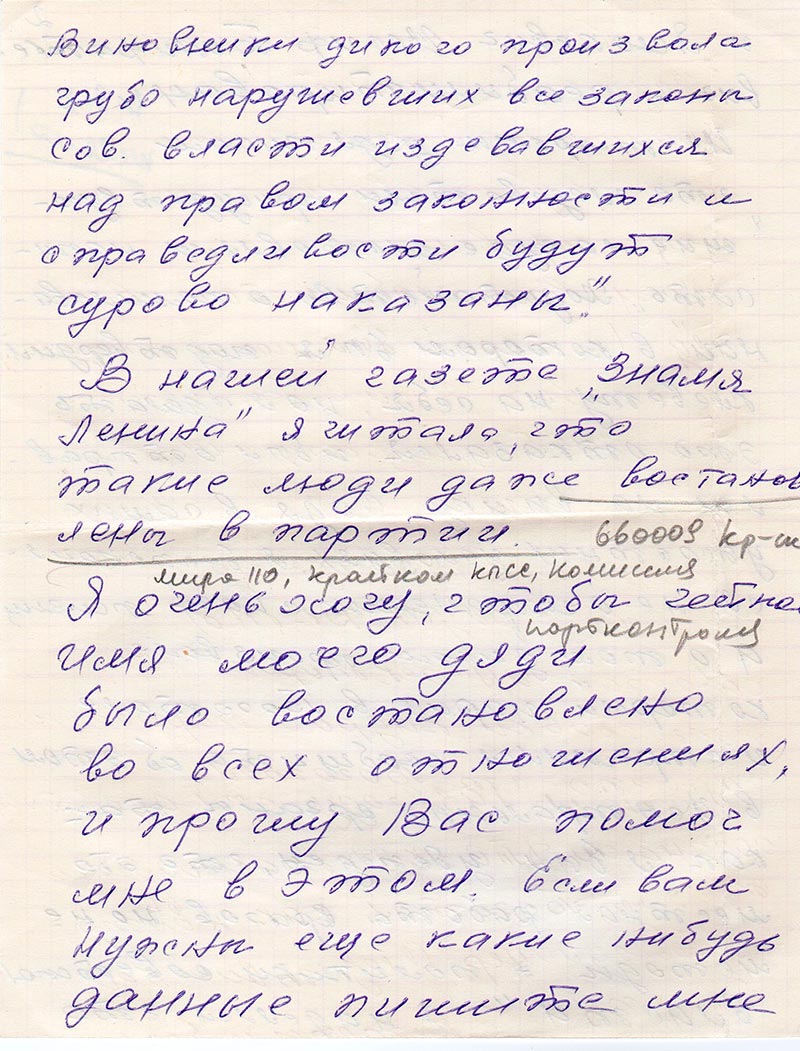 Виновники дикого произвола
грубо нарушевших все законы
сов. власти издевавшихся
над правом законности и
справедливости будут
сурово наказаны".
В нашей газете „Знамя
Ленина" я читала, что
такие люди даже востанов
лены в партии.
660009 Кр-ск
мира 110, крайком кпсс, комиссия
партконтроля
Я очень хочу, чтобы честное
имя моего дяди
было востановлено
во всех отношениях,
и прошу Вас помоч
мне в этом. Если вам
нужны еще какие нибудь
данные пишите мне